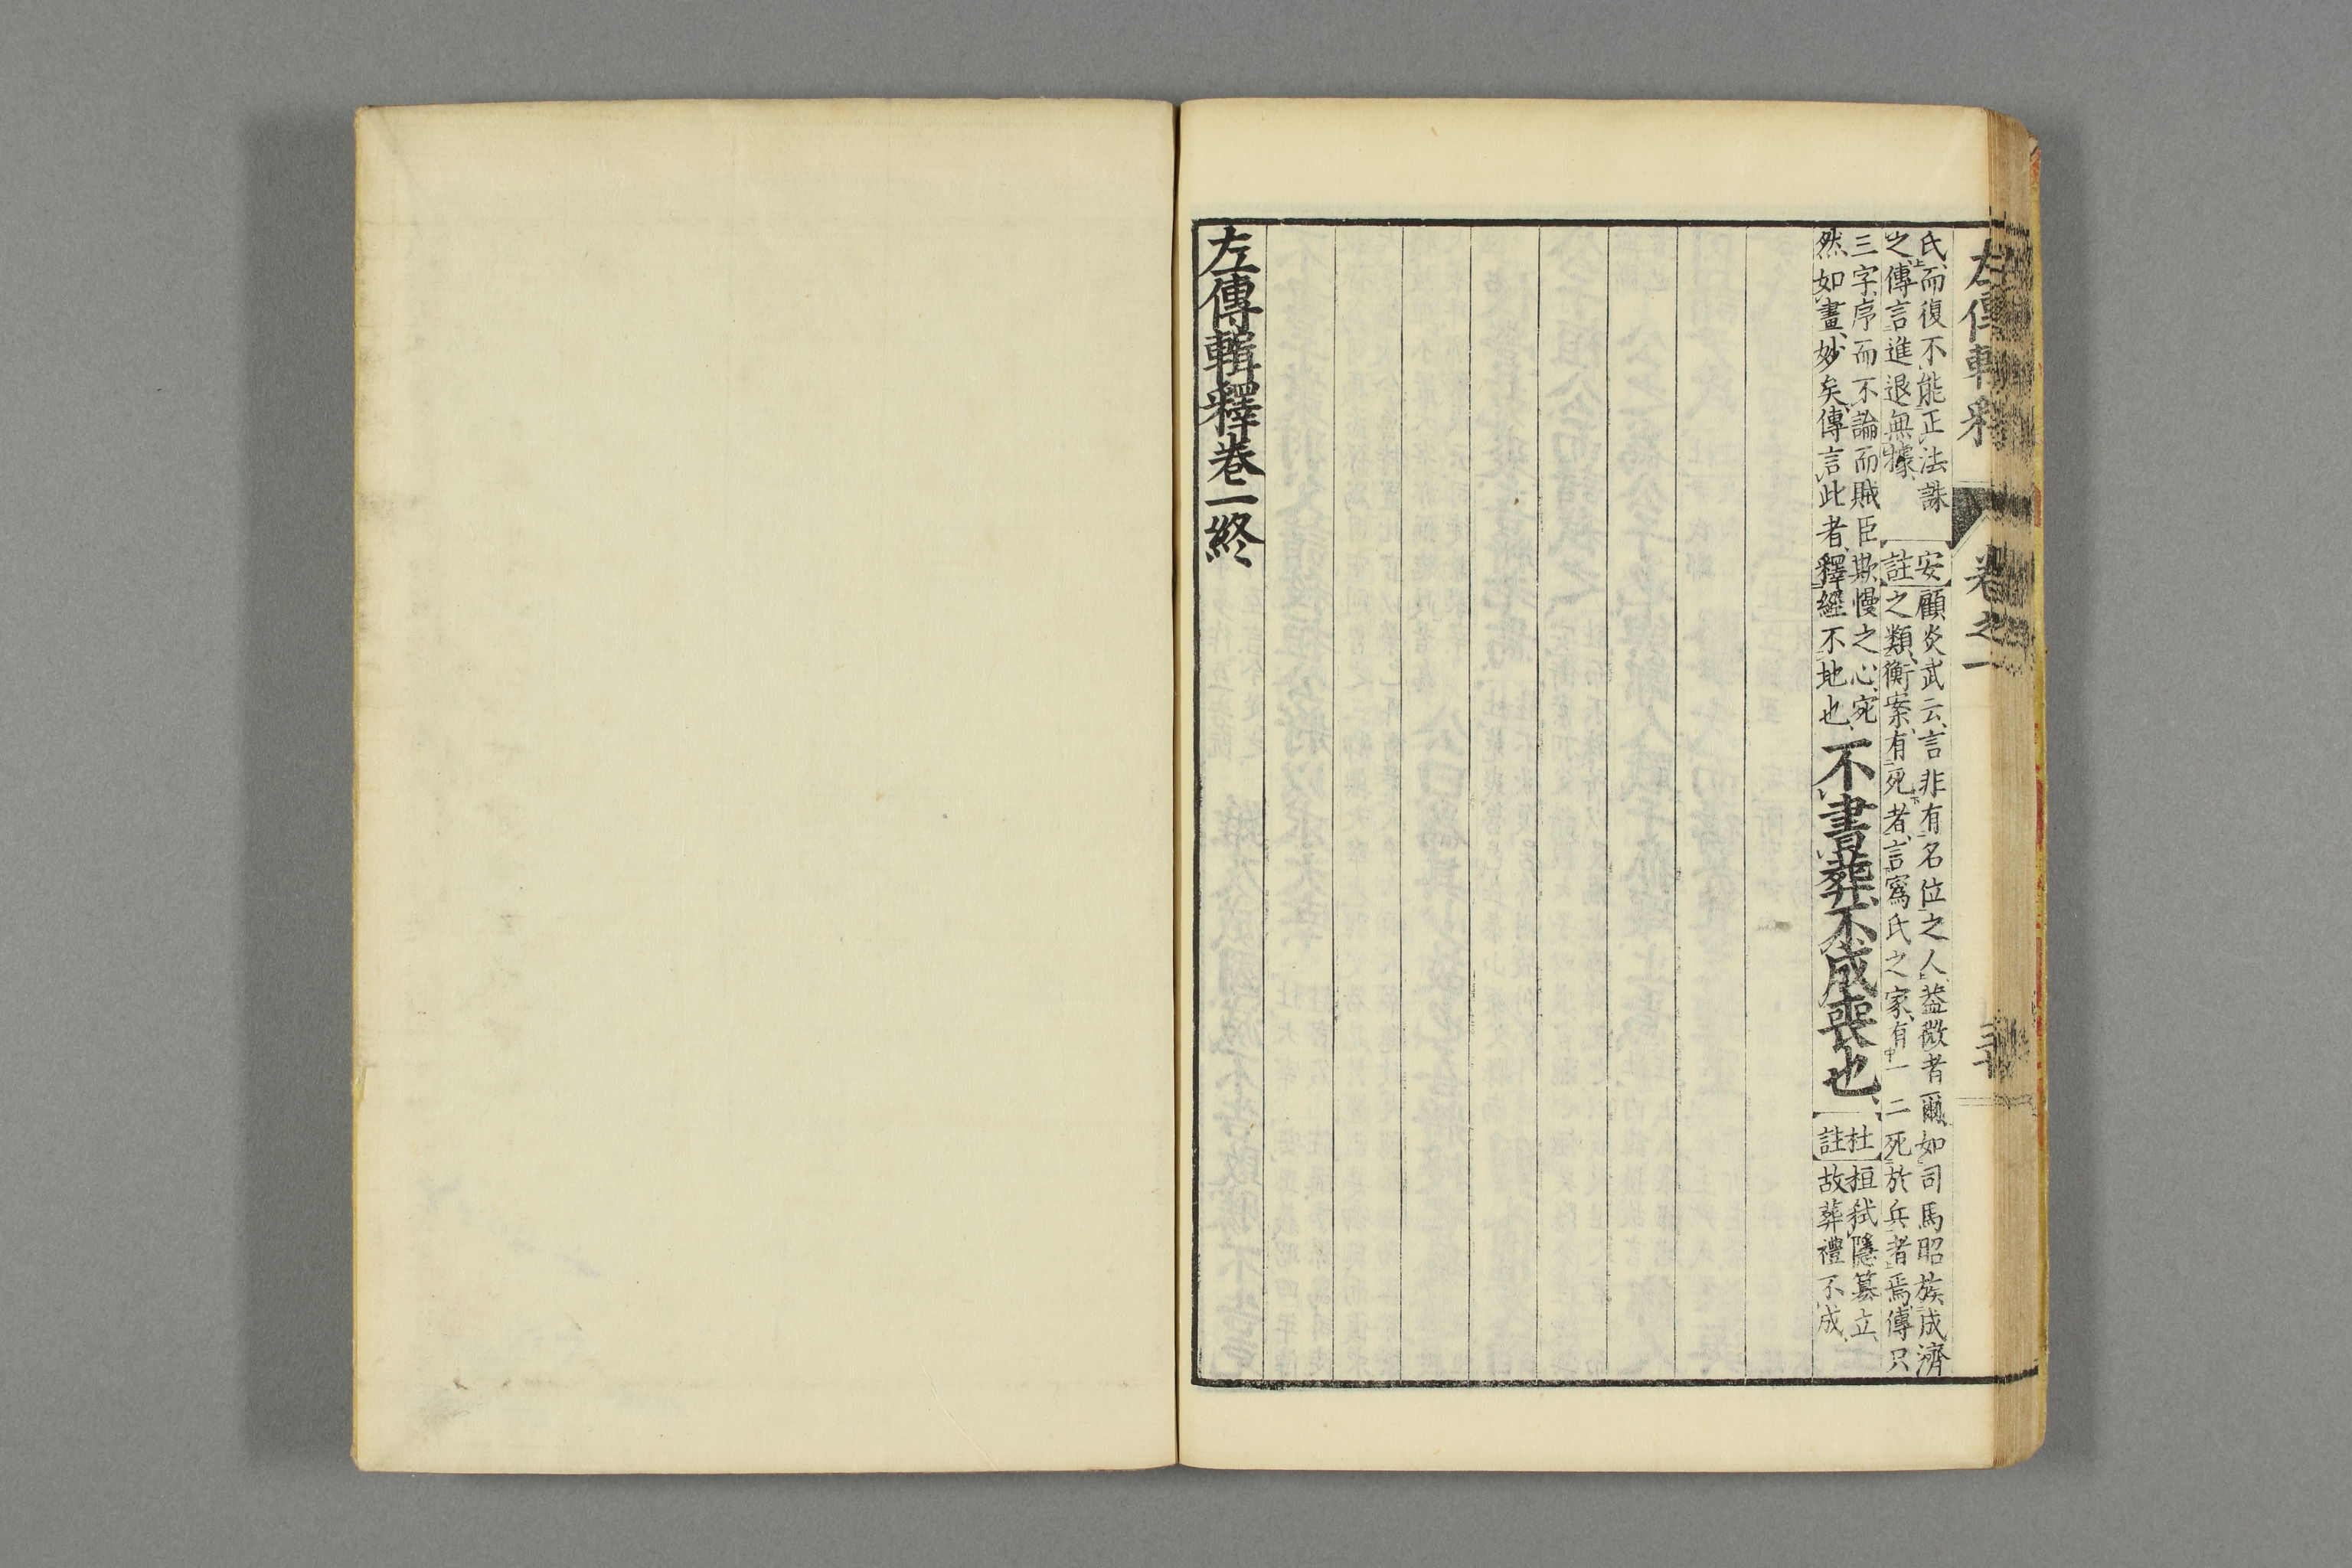 左傳輯釋 卷之一
氏而復不能正法誅
之傳言進退無據
安註
顧炎武云言非有名位之人蓋微者爾如司馬昭族成濟
之類衡案有死者言寪氏之家有一二死於兵者焉傳只
三字序而不論而賊臣欺慢之心宛
然如畫妙矣傳言此者釋經不地也
不書葬不成喪也
杜註
桓弒隱篡立
故葬禮不成
左傳輯釋卷一終